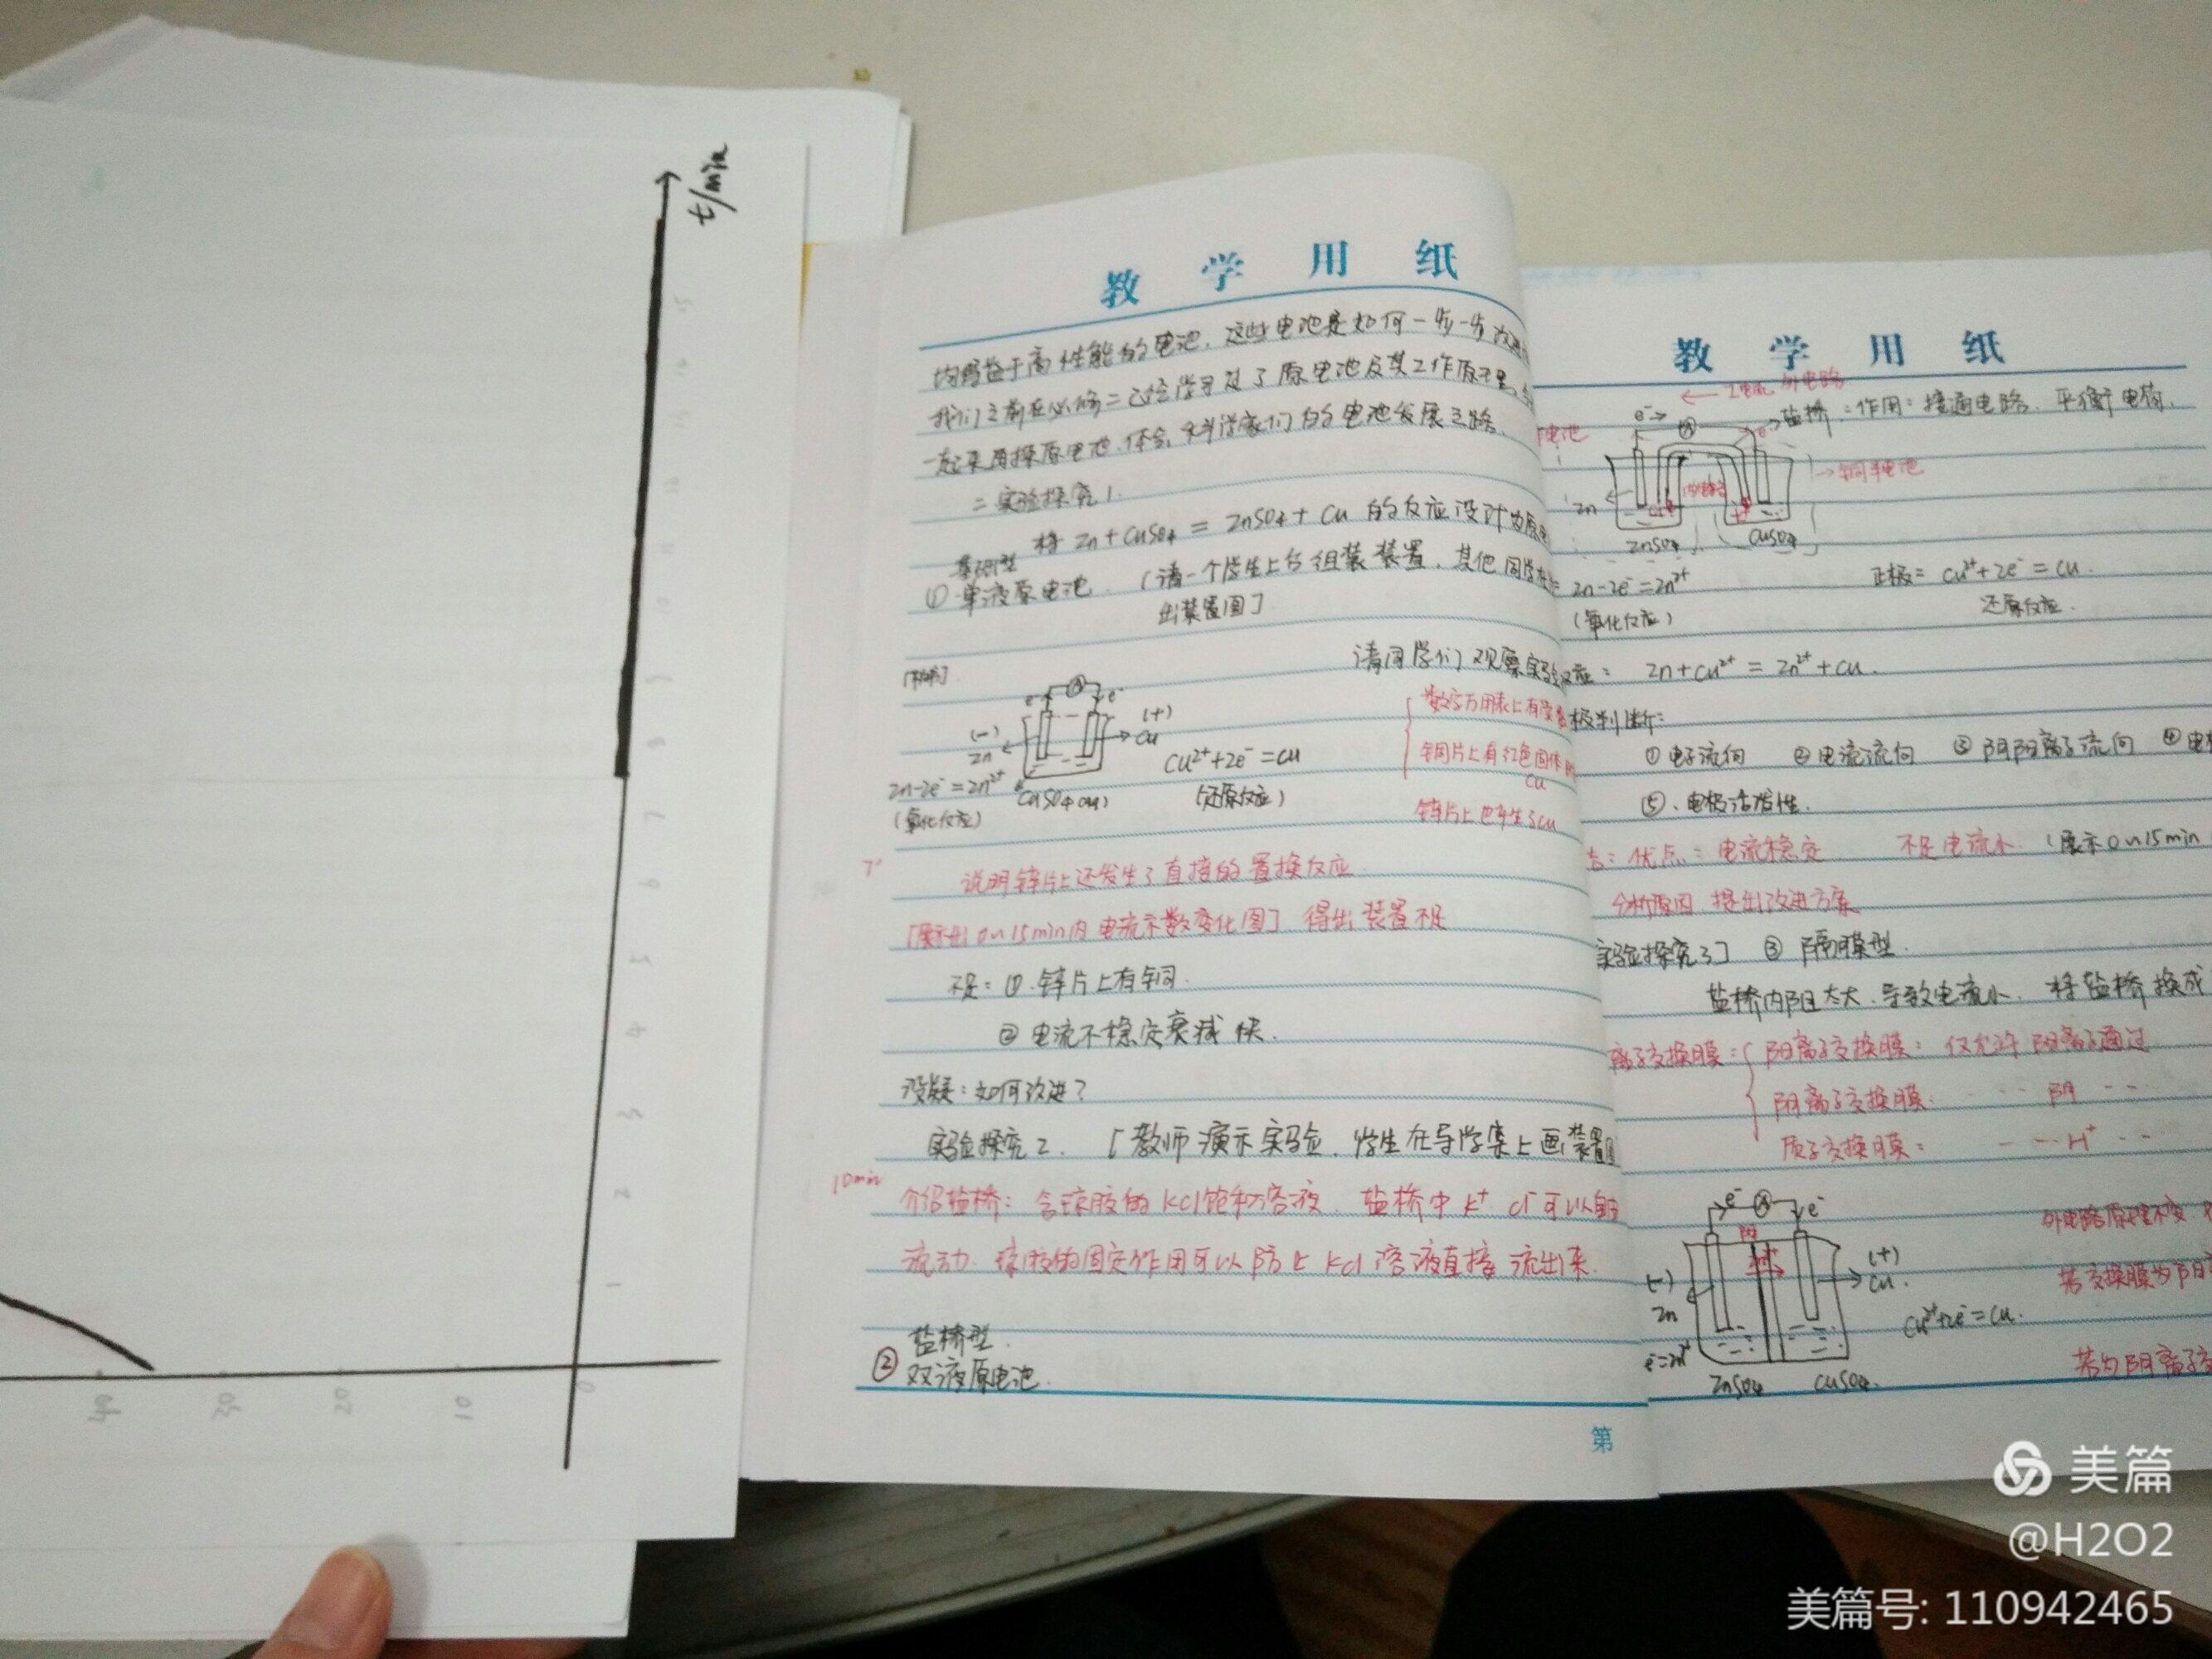 t/min
15
14
13
12
11
10
9
8
7
6
5
4
3
2
1
0
10
20
30
40
教 学 用 纸
均得益于高性能的电池，这些电池是如何一步一步改进
我们之前在必修二已经学习过了原电池及其工作原理，
一起来再探原电池，体会科学家们的电池发展之路.
二 实验探究1.
将 Zn+CuSO4 = ZnSO4+Cu 的反应设计为原电
基础型
① 单液原电池. (请一个学生上台组装装置，其他同学在
出装置图]
请同学们观察实验
e⁻ A e⁻
(-)
Zn
(+)
Cu
Zn-2e⁻=Zn²⁺
(氧化反应)
CuSO4(aq)
Cu²⁺+2e⁻=Cu
(还原反应)
数字万用表上有
铜片上有红色固体
Cu
锌片上也产生了Cu
7'
说明锌片上还发生了直接的置换反应
[展示出0~15min内电流示数变化图] 得出装置不足
不足: ①.锌片上有铜.
② 电流不稳定衰减快.
设疑: 如何改进?
实验探究2. [教师演示实验，学生在导学案上画装置图
10min
介绍盐桥: 含琼胶的KCl饱和溶液. 盐桥中K⁺ Cl⁻可以自由
流动. 琼胶的固定作用可以防止KCl溶液直接流出来.
盐桥型.
② 双液原电池.
第
教 学 用 纸
← I电流 外电路
e⁻→ A
盐桥: 作用: 接通电路. 平衡电荷.
电池
→铜半电池
内电路
Zn
ZnSO4
CuSO4
Zn-2e⁻=Zn²⁺
(氧化反应)
正极= Cu²⁺+2e⁻=Cu.
还原反应.
应: Zn+Cu²⁺=Zn²⁺+Cu.
极判断:
① 电子流向 ② 电流流向 ③ 阴阳离子流向 ④ 电
⑤. 电极活泼性.
优点: 电流稳定 不足电流小. (展示0~15min
分析原因 提出改进方案
实验探究3] ③ 隔膜型.
盐桥内阻太大.导致电流小. 将盐桥换成
离子交换膜: 阳离子交换膜: 仅允许阳离子通过
阴离子交换膜: 阴
质子交换膜: H⁺
e⁻ A e⁻
(-)
Zn
(+)
Cu.
e⁻=Zn²⁺
ZnSO4 CuSO4.
Cu²⁺+2e⁻=Cu.
外电路原理不变
若交换膜为阳
若为阴离子交
美篇
@H2O2
美篇号: 110942465